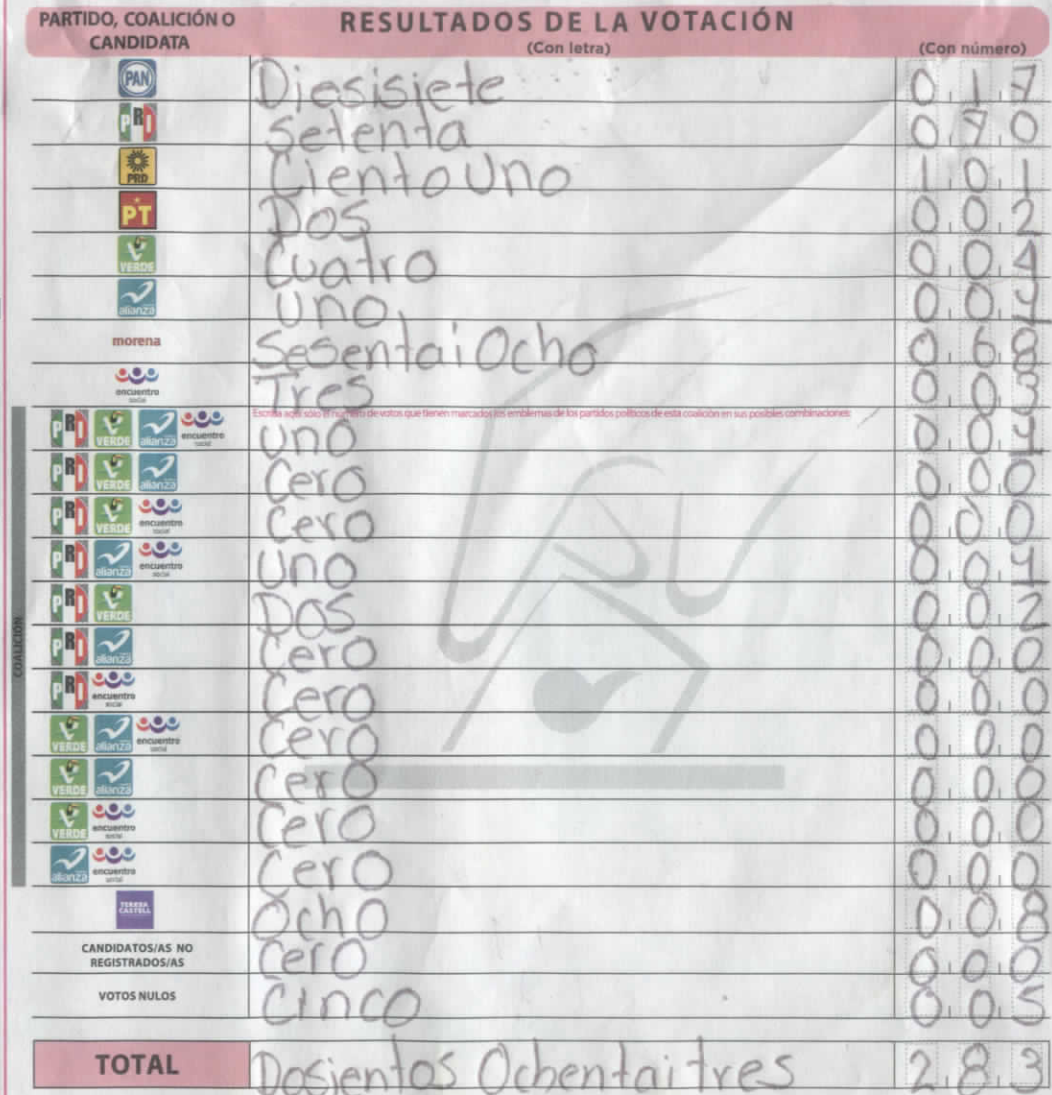 PARTIDO, COALICIÓN O CANDIDATA RESULTADOS DE LA VOTACIÓN (Con letra) (Con número)
PAN Diesisiete 0 1 7
PRI Setenta 0 7 0
PRD Ciento Uno 1 0 1
PT Dos 0 0 2
VERDE Cuatro 0 0 4
alianza uno 0 0 1
morena Sesentai Ocho 0 6 8
encuentro social Tres 0 0 3
Escriba aquí sólo el número de votos que tienen marcados los emblemas de los partidos políticos de esta coalición en sus posibles combinaciones:
COALICIÓN
PRI VERDE alianza encuentro social uno 0 0 1
PRI VERDE alianza Cero 0 0 0
PRI VERDE encuentro social Cero 0 0 0
PRI alianza encuentro social uno 0 0 1
PRI VERDE Dos 0 0 2
PRI alianza Cero 0 0 0
PRI encuentro social Cero 0 0 0
VERDE alianza encuentro social Cero 0 0 0
VERDE alianza Cero 0 0 0
VERDE encuentro social Cero 0 0 0
alianza encuentro social Cero 0 0 0
TERESA CASTELL Ocho 0 0 8
CANDIDATOS/AS NO REGISTRADOS/AS Cero 0 0 0
VOTOS NULOS Cinco 0 0 5
TOTAL Dosientos Ochentaitres 2 8 3